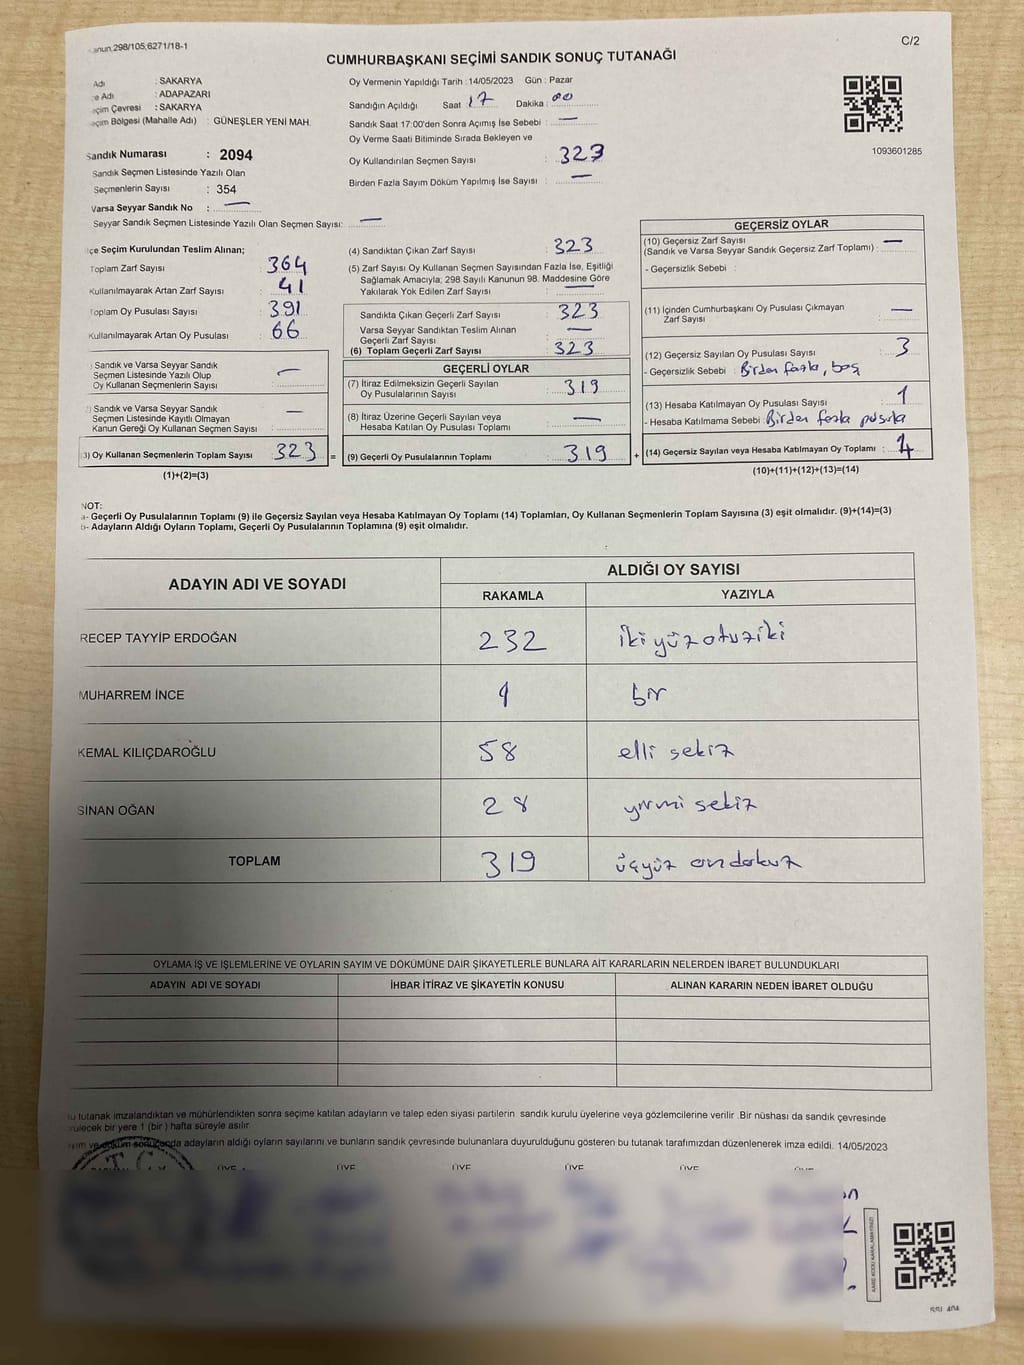 anun,298/105,6271/18-1
C/2
CUMHURBAŞKANI SEÇİMİ SANDIK SONUÇ TUTANAĞI
Adı : SAKARYA
e Adı : ADAPAZARI
eçim Çevresi : SAKARYA
eçim Bölgesi (Mahalle Adı) : GÜNEŞLER YENİ MAH.
Sandık Numarası : 2094
Sandık Seçmen Listesinde Yazılı Olan
Seçmenlerin Sayısı : 354
Varsa Seyyar Sandık No : —
Seyyar Sandık Seçmen Listesinde Yazılı Olan Seçmen Sayısı: —
Oy Vermenin Yapıldığı Tarih : 14/05/2023 Gün : Pazar
Sandığın Açıldığı Saat 17 Dakika : 00
Sandık Saat 17:00'den Sonra Açılmış İse Sebebi : —
Oy Verme Saati Bitiminde Sırada Bekleyen ve
Oy Kullandırılan Seçmen Sayısı : 323
Birden Fazla Sayım Döküm Yapılmış İse Sayısı : —
1093601285
çe Seçim Kurulundan Teslim Alınan;
Toplam Zarf Sayısı : 364
Kullanılmayarak Artan Zarf Sayısı : 41
Toplam Oy Pusulası Sayısı : 391
Kullanılmayarak Artan Oy Pusulası : 66
Sandık ve Varsa Seyyar Sandık
Seçmen Listesinde Yazılı Olup
Oy Kullanan Seçmenlerin Sayısı : —
) Sandık ve Varsa Seyyar Sandık
Seçmen Listesinde Kayıtlı Olmayan
Kanun Gereği Oy Kullanan Seçmen Sayısı : —
3) Oy Kullanan Seçmenlerin Toplam Sayısı : 323 =
(1)+(2)=(3)
(4) Sandıktan Çıkan Zarf Sayısı : 323
(5) Zarf Sayısı Oy Kullanan Seçmen Sayısından Fazla İse, Eşitliği
Sağlamak Amacıyla; 298 Sayılı Kanunun 98. Maddesine Göre
Yakılarak Yok Edilen Zarf Sayısı : —
Sandıkta Çıkan Geçerli Zarf Sayısı : 323
Varsa Seyyar Sandıktan Teslim Alınan
Geçerli Zarf Sayısı : —
(6) Toplam Geçerli Zarf Sayısı : 323
GEÇERLİ OYLAR
(7) İtiraz Edilmeksizin Geçerli Sayılan
Oy Pusulalarının Sayısı : 319
(8) İtiraz Üzerine Geçerli Sayılan veya
Hesaba Katılan Oy Pusulası Toplamı : —
(9) Geçerli Oy Pusulalarının Toplamı : 319 +
GEÇERSİZ OYLAR
(10) Geçersiz Zarf Sayısı
(Sandık ve Varsa Seyyar Sandık Geçersiz Zarf Toplamı) : —
- Geçersizlik Sebebi :
(11) İçinden Cumhurbaşkanı Oy Pusulası Çıkmayan
Zarf Sayısı : —
(12) Geçersiz Sayılan Oy Pusulası Sayısı : 3
- Geçersizlik Sebebi : Birden fazla, boş
(13) Hesaba Katılmayan Oy Pusulası Sayısı : 1
- Hesaba Katılmama Sebebi : Birden fazla pusula
(14) Geçersiz Sayılan veya Hesaba Katılmayan Oy Toplamı : 4
(10)+(11)+(12)+(13)=(14)
NOT:
a- Geçerli Oy Pusulalarının Toplamı (9) ile Geçersiz Sayılan veya Hesaba Katılmayan Oy Toplamı (14) Toplamları, Oy Kullanan Seçmenlerin Toplam Sayısına (3) eşit olmalıdır. (9)+(14)=(3)
b- Adayların Aldığı Oyların Toplamı, Geçerli Oy Pusulalarının Toplamına (9) eşit olmalıdır.
ADAYIN ADI VE SOYADI
ALDIĞI OY SAYISI
RAKAMLA YAZIYLA
RECEP TAYYİP ERDOĞAN 232 ikiyüzotuziki
MUHARREM İNCE 1 bir
KEMAL KILIÇDAROĞLU 58 elli sekiz
SİNAN OĞAN 28 yirmi sekiz
TOPLAM 319 üçyüz ondokuz
OYLAMA İŞ VE İŞLEMLERİNE VE OYLARIN SAYIM VE DÖKÜMÜNE DAİR ŞİKAYETLERLE BUNLARA AİT KARARLARIN NELERDEN İBARET BULUNDUKLARI
ADAYIN ADI VE SOYADI İHBAR İTİRAZ VE ŞİKAYETİN KONUSU ALINAN KARARIN NEDEN İBARET OLDUĞU
u tutanak imzalandıktan ve mühürlendikten sonra seçime katılan adayların ve talep eden siyasi partilerin sandık kurulu üyelerine veya gözlemcilerine verilir .Bir nüshası da sandık çevresinde
rülecek bir yere 1 (bir ) hafta süreyle asılır.
yım ve döküm sonucunda adayların aldığı oyların sayılarını ve bunların sandık çevresinde bulunanlara duyurulduğunu gösteren bu tutanak tarafımızdan düzenlenerek imza edildi. 14/05/2023
T.C.
ÜYE ÜYE ÜYE ÜYE ÜYE ÜYE